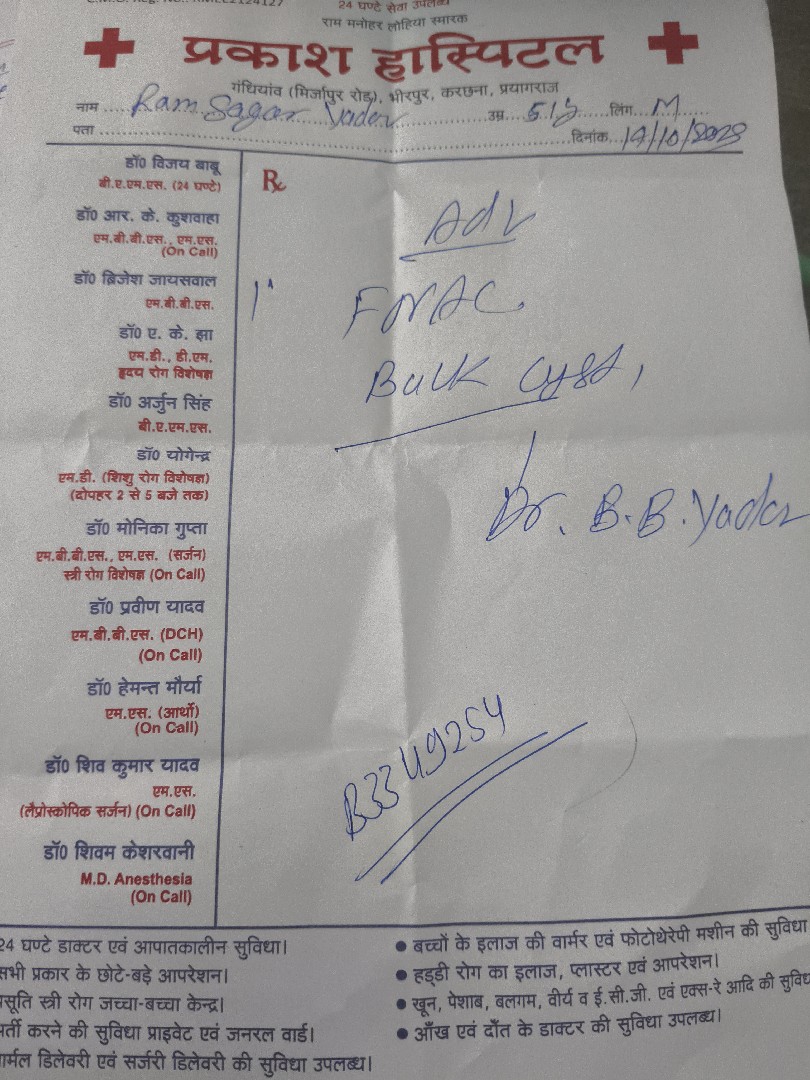 24 घण्टे सेवा उपलब्ध
राम मनोहर लोहिया स्मारक
प्रकाश हास्पिटल
गंधियांव (मिर्जापुर रोड), भीरपुर, करछना, प्रयागराज
नाम .... Ram Sagar Yadav .... उम्र... 51y ....लिंग... M
पता ..... दिनांक... 19/10/2023
डॉ0 विजय बाबू
बी.ए.एम.एस. (24 घण्टे)
डॉ0 आर. के. कुशवाहा
एम.बी.बी.एस., एम.एस.
(On Call)
डॉ0 ब्रिजेश जायसवाल
एम.बी.बी.एस.
डॉ0 ए. के. झा
एम.डी., डी.एम.
हृदय रोग विशेषज्ञ
डॉ0 अर्जुन सिंह
बी.ए.एम.एस.
डॉ0 योगेन्द्र
एम.डी. (शिशु रोग विशेषज्ञ)
(दोपहर 2 से 5 बजे तक)
डॉ0 मोनिका गुप्ता
एम.बी.बी.एस., एम.एस. (सर्जन)
स्त्री रोग विशेषज्ञ (On Call)
डॉ0 प्रवीण यादव
एम.बी.बी.एस. (DCH)
(On Call)
डॉ0 हेमन्त मौर्या
एम.एस. (आर्थो)
(On Call)
डॉ0 शिव कुमार यादव
एम.एस.
(लैप्रोस्कोपिक सर्जन) (On Call)
डॉ0 शिवम केशरवानी
M.D. Anesthesia
(On Call)
Rx
Adv
FNAC
Back Cyst,
Dr. B.B. Yadav
B3349254
24 घण्टे डाक्टर एवं आपातकालीन सुविधा।
सभी प्रकार के छोटे-बड़े आपरेशन।
प्रसूति स्त्री रोग जच्चा-बच्चा केन्द्र।
भर्ती करने की सुविधा प्राइवेट एवं जनरल वार्ड।
नार्मल डिलेवरी एवं सर्जरी डिलेवरी की सुविधा उपलब्ध।
● बच्चों के इलाज की वार्मर एवं फोटोथेरेपी मशीन की सुविधा
● हड्डी रोग का इलाज, प्लास्टर एवं आपरेशन।
● खून, पेशाब, बलगम, वीर्य व ई.सी.जी. एवं एक्स-रे आदि की सुविधा
● आँख एवं दाँत के डाक्टर की सुविधा उपलब्ध।